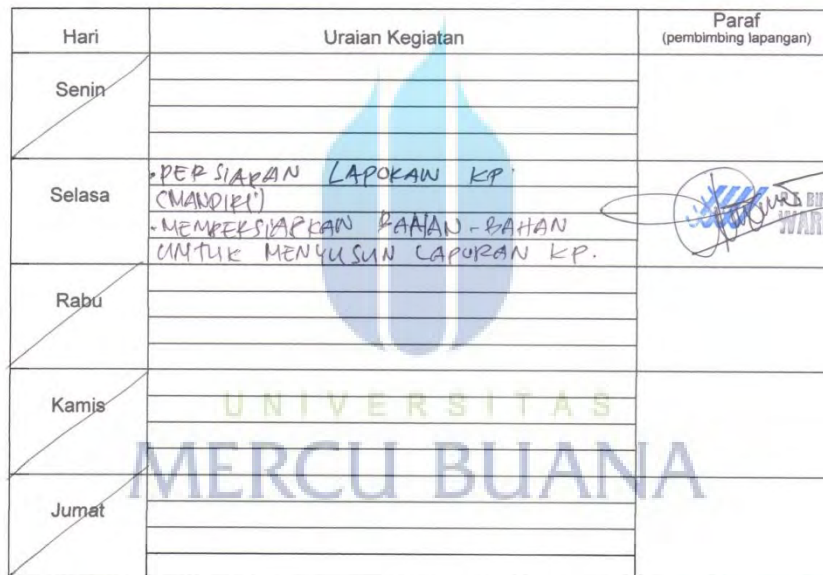 Hari Uraian Kegiatan Paraf
(pembimbing lapangan)
Senin
Selasa
• PERSIAPAN LAPORAN KP.
(MANDIRI)
• MEMPERSIAPKAN BAHAN-BAHAN
UNTUK MENYUSUN LAPORAN KP.
Rabu
Kamis
Jumat
UNIVERSITAS
MERCU BUANA